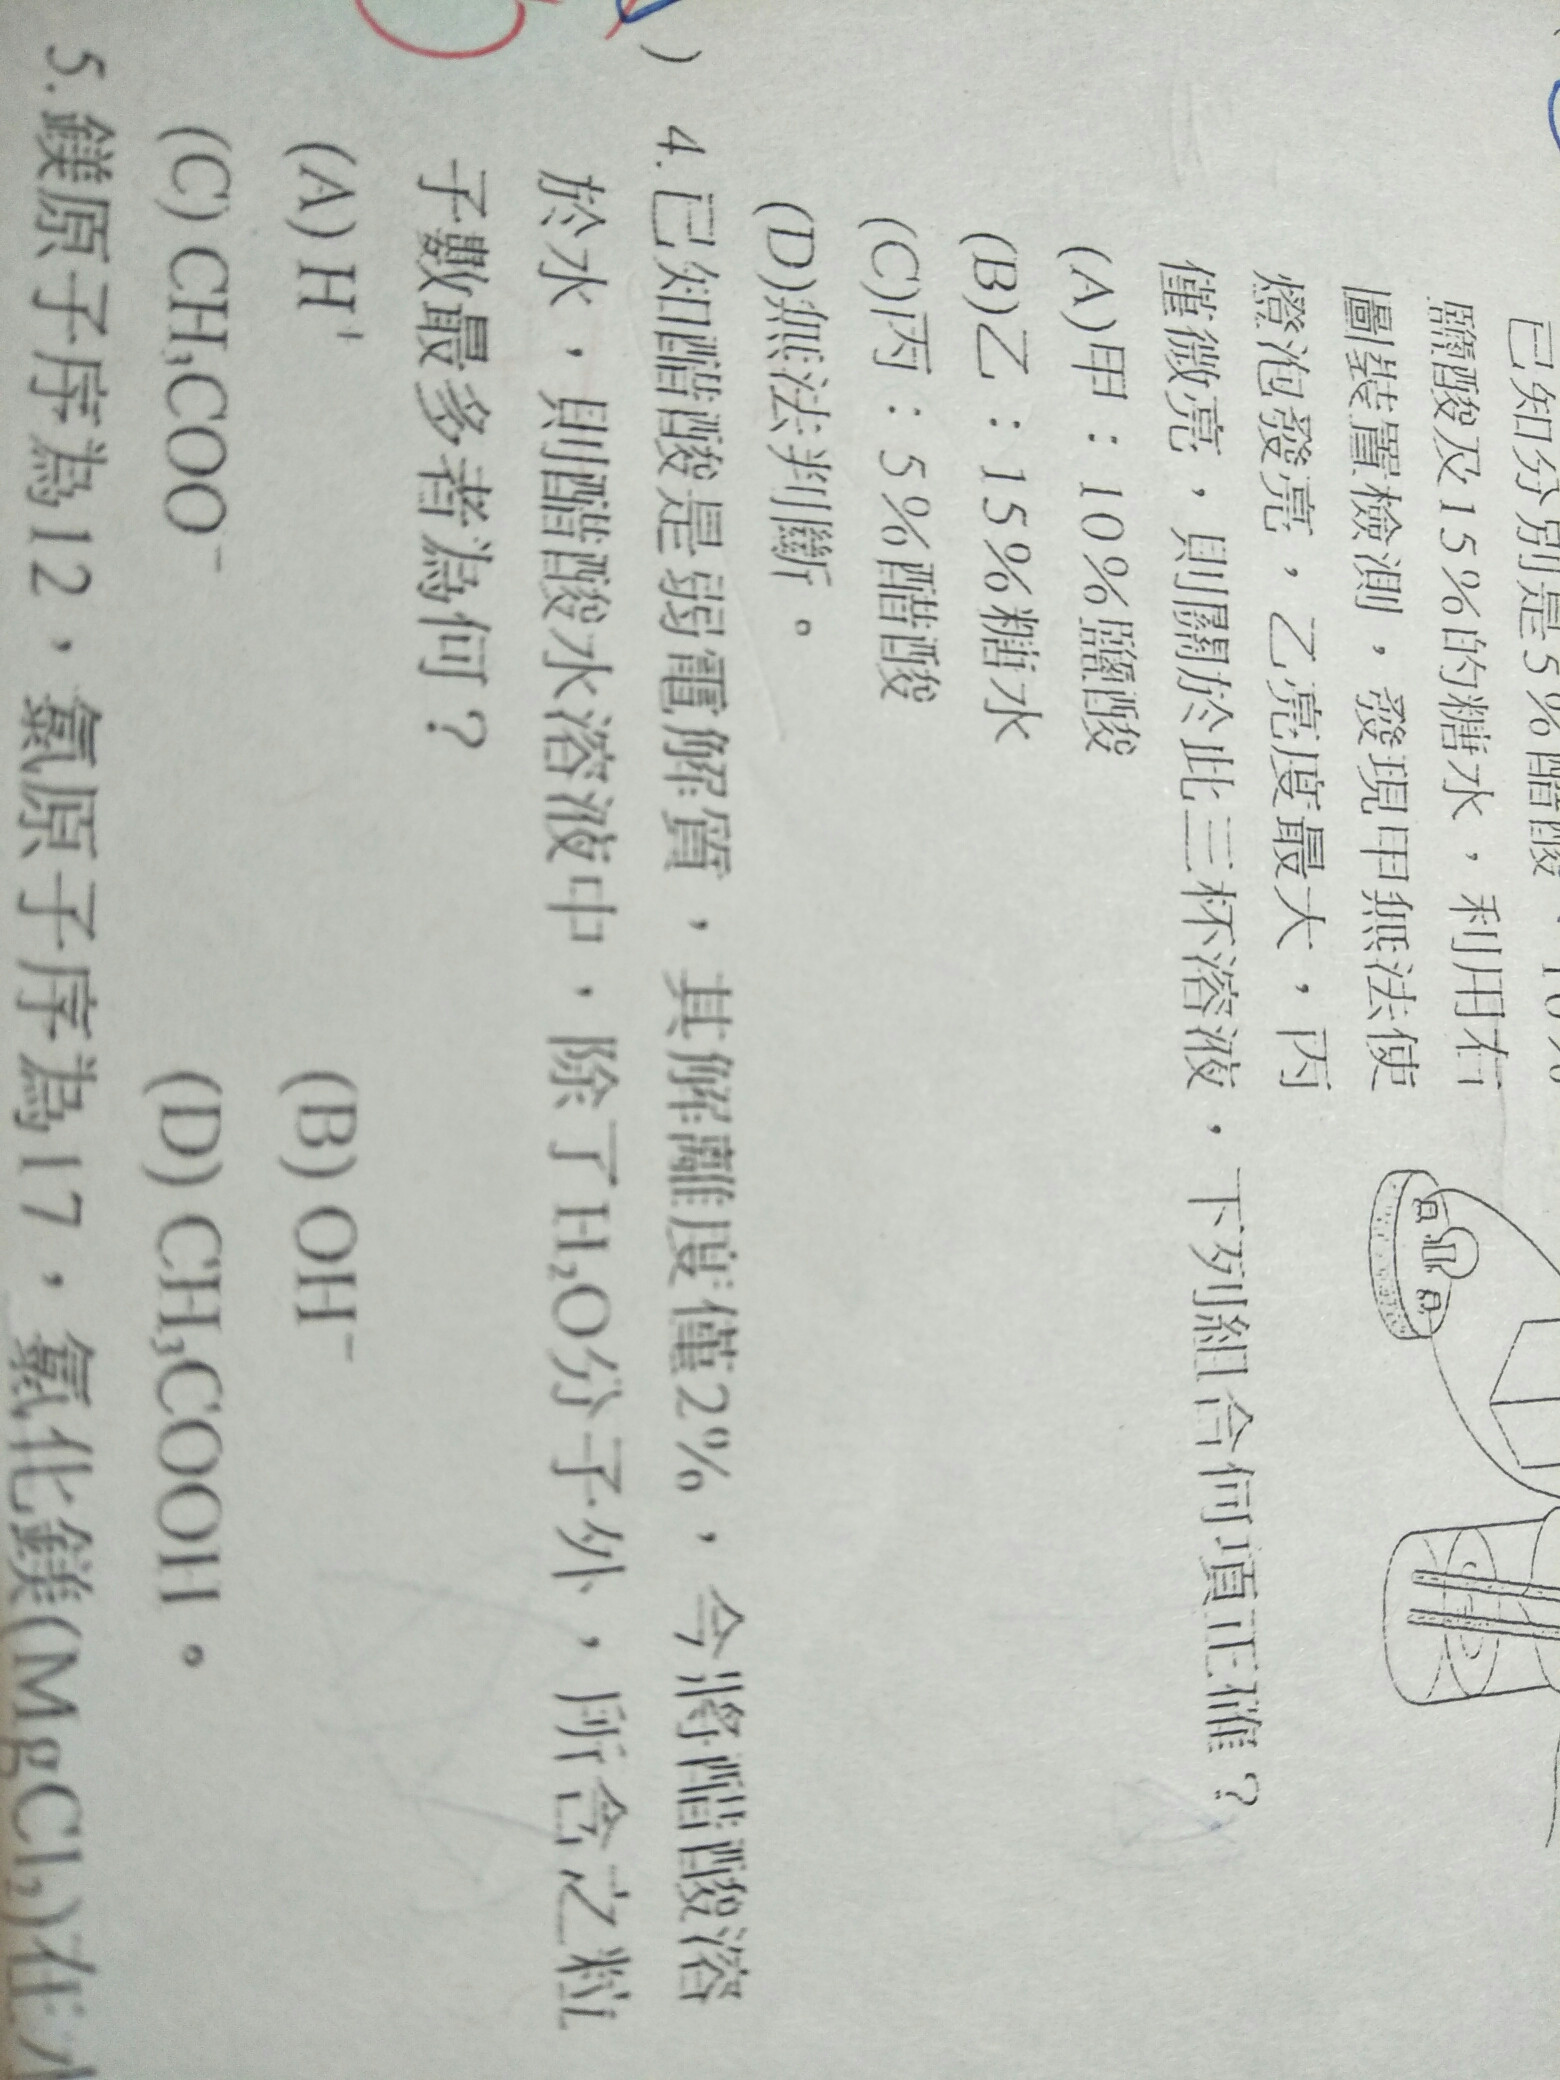 已知分別是5%醋酸、10%
鹽酸及15%的糖水，利用右
圖裝置檢測，發現甲無法使
燈泡發亮，乙亮度最大，丙
僅微亮，則關於此三杯溶液，下列組合何項正確？
(A)甲：10%鹽酸
(B)乙：15%糖水
(C)丙：5%醋酸
(D)無法判斷。
) 4.已知醋酸是弱電解質，其解離度僅2%，今將醋酸溶
於水，則醋酸水溶液中，除了H₂O分子外，所含之粒
子數最多者為何？
(A) H⁺ (B) OH⁻
(C) CH₃COO⁻ (D) CH₃COOH。
5.鎂原子序為12，氯原子序為17，氯化鎂(MgCl₂)在水